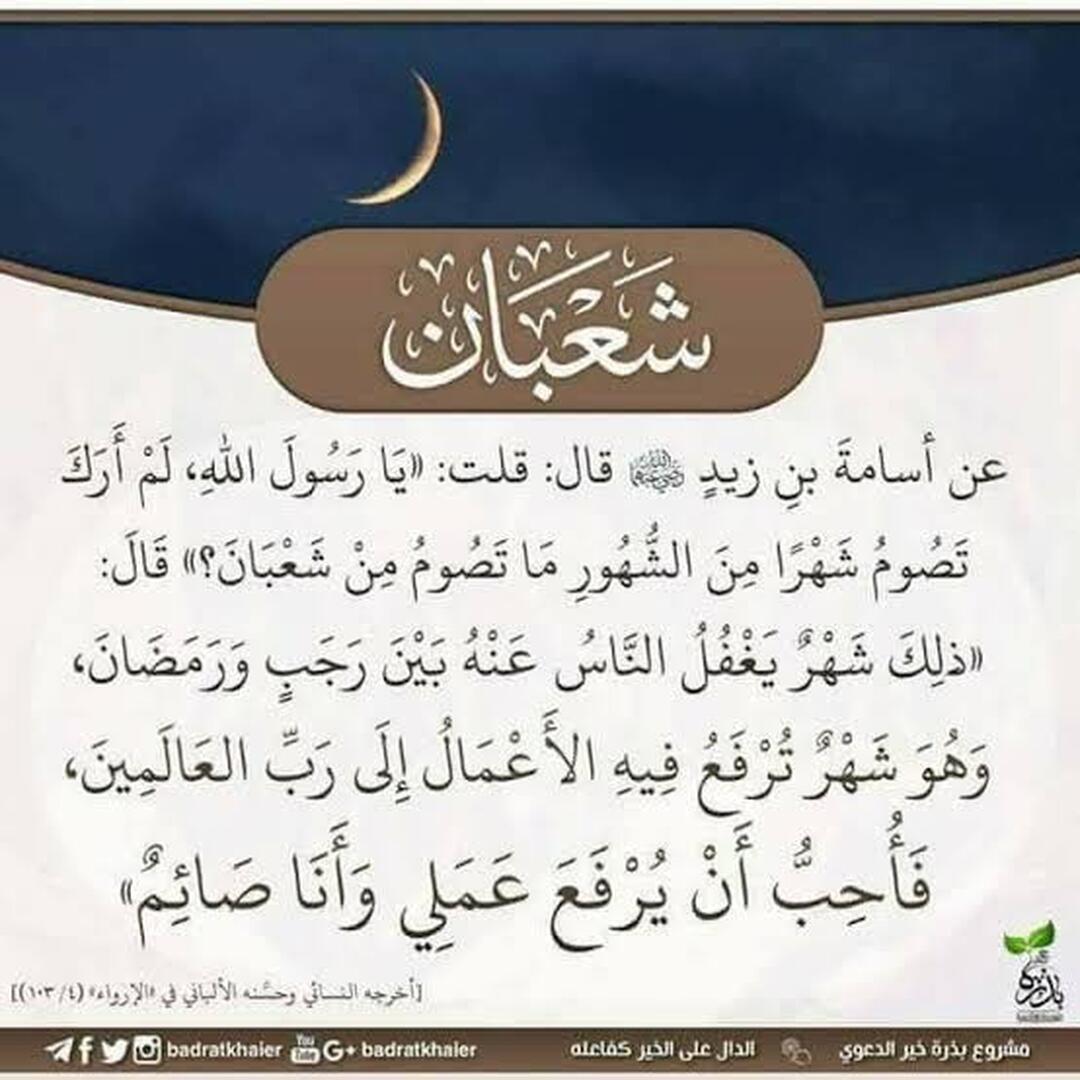 شَعْبَان
عن أسامةَ بنِ زيدٍ رضي الله عنهما قال: قلت: «يَا رَسُولَ اللهِ، لَمْ أَرَكَ
تَصُومُ شَهْرًا مِنَ الشُّهُورِ مَا تَصُومُ مِنْ شَعْبَانَ؟» قَالَ:
«ذلِكَ شَهْرٌ يَغْفُلُ النَّاسُ عَنْهُ بَيْنَ رَجَبٍ وَرَمَضَانَ،
وَهُوَ شَهْرٌ تُرْفَعُ فِيهِ الأَعْمَالُ إِلَى رَبِّ العَالَمِينَ،
فَأُحِبُّ أَنْ يُرْفَعَ عَمَلِي وَأَنَا صَائِمٌ»
[أخرجه النسائي وحسَّنه الألباني في «الإرواء» (٤/ ١٠٣)]
بذرة
مشروع بذرة خير الدعوي الدال على الخير كفاعله badratkhaier You Tube G+ badratkhaier